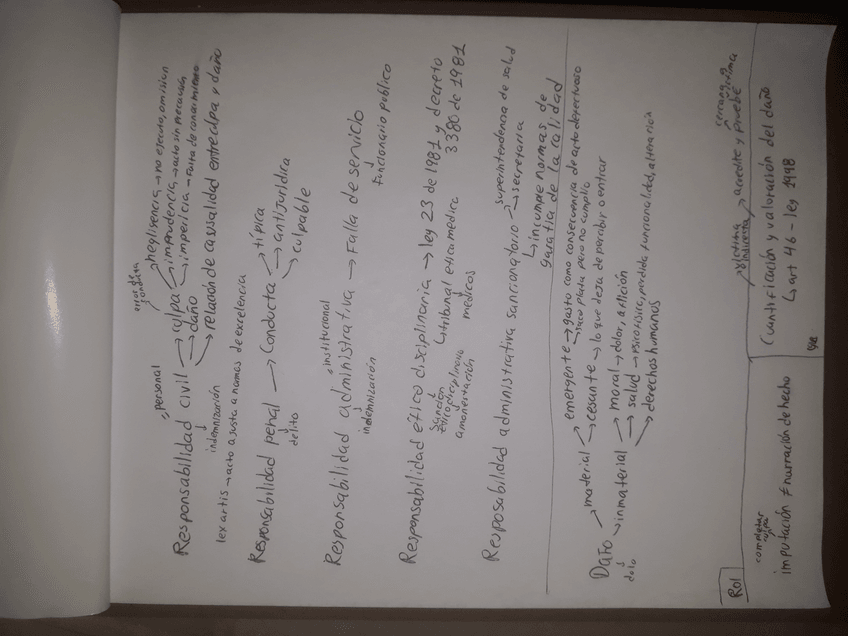 error de conducta
"personal negligencia → no ejecuto, omision
Responsabilidad civil → culpa → imprudencia → acto sin precaucion
indemnización → daño → impericia → falta de conocimiento
→ relación de casualidad entre culpa y daño
lex artis → acto ajusta a normas de excelencia
Responsabilidad penal → Conducta → típica
delito → antijurídica
→ culpable
"institucional
Responsabilidad administrativa → Falla de servicio
indemnización funcionario publico
Responsabilidad ético disciplinaria → ley 23 de 1981 y decreto
sanción ↳ tribunal etico medico 3380 de 1981
etico disciplinario medicos
amonestación
superintendencia de salud
Resposabilidad administrativa sancionatorio → secretaria
↳ incumple normas de
garatia de la calidad
emergente → gasto como consecuencia de acto defectuoso
→ material → saco plata pero no cumplio
Daño → cesante → lo que deja de percibir o entrar
dolo → inmaterial → moral → dolor, aflicción
→ salud → psicofísico, perdida funcionalidad, alteración
→ derechos humanos
Rol
victima
indirecta → acredite y pruebe
cercano victima
completar
culpa
imputación ≠ narración de hecho
Cuantificación y valoración del daño
↳ art 46 - ley 1998